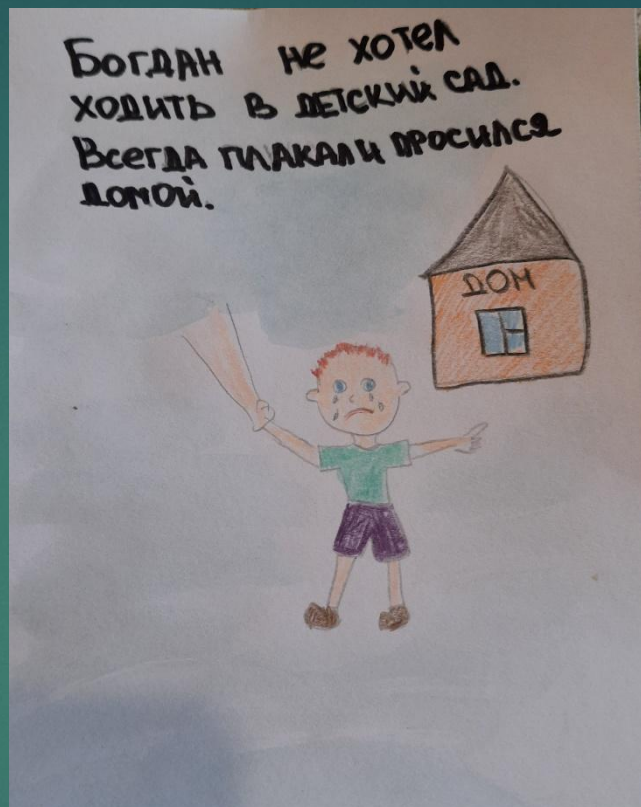 Богдан не хотел
ходить в детский сад.
Всегда плакал и просился
домой.
ДОМ